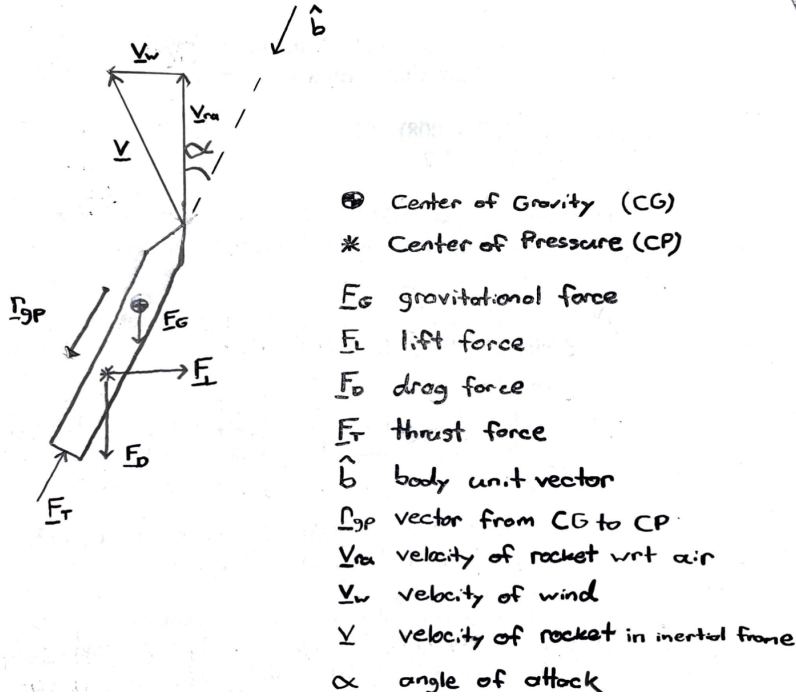 b̂
V_w
V_ra
V
α
⊕ Center of Gravity (CG)
* Center of Pressure (CP)
F_G gravitational force
r_gp
F_G
F_L lift force
F_L
F_D drag force
F_T thrust force
F_D
b̂ body unit vector
F_T
r_gp vector from CG to CP
V_ra velocity of rocket wrt air
V_w velocity of wind
V velocity of rocket in inertial frame
α angle of attack